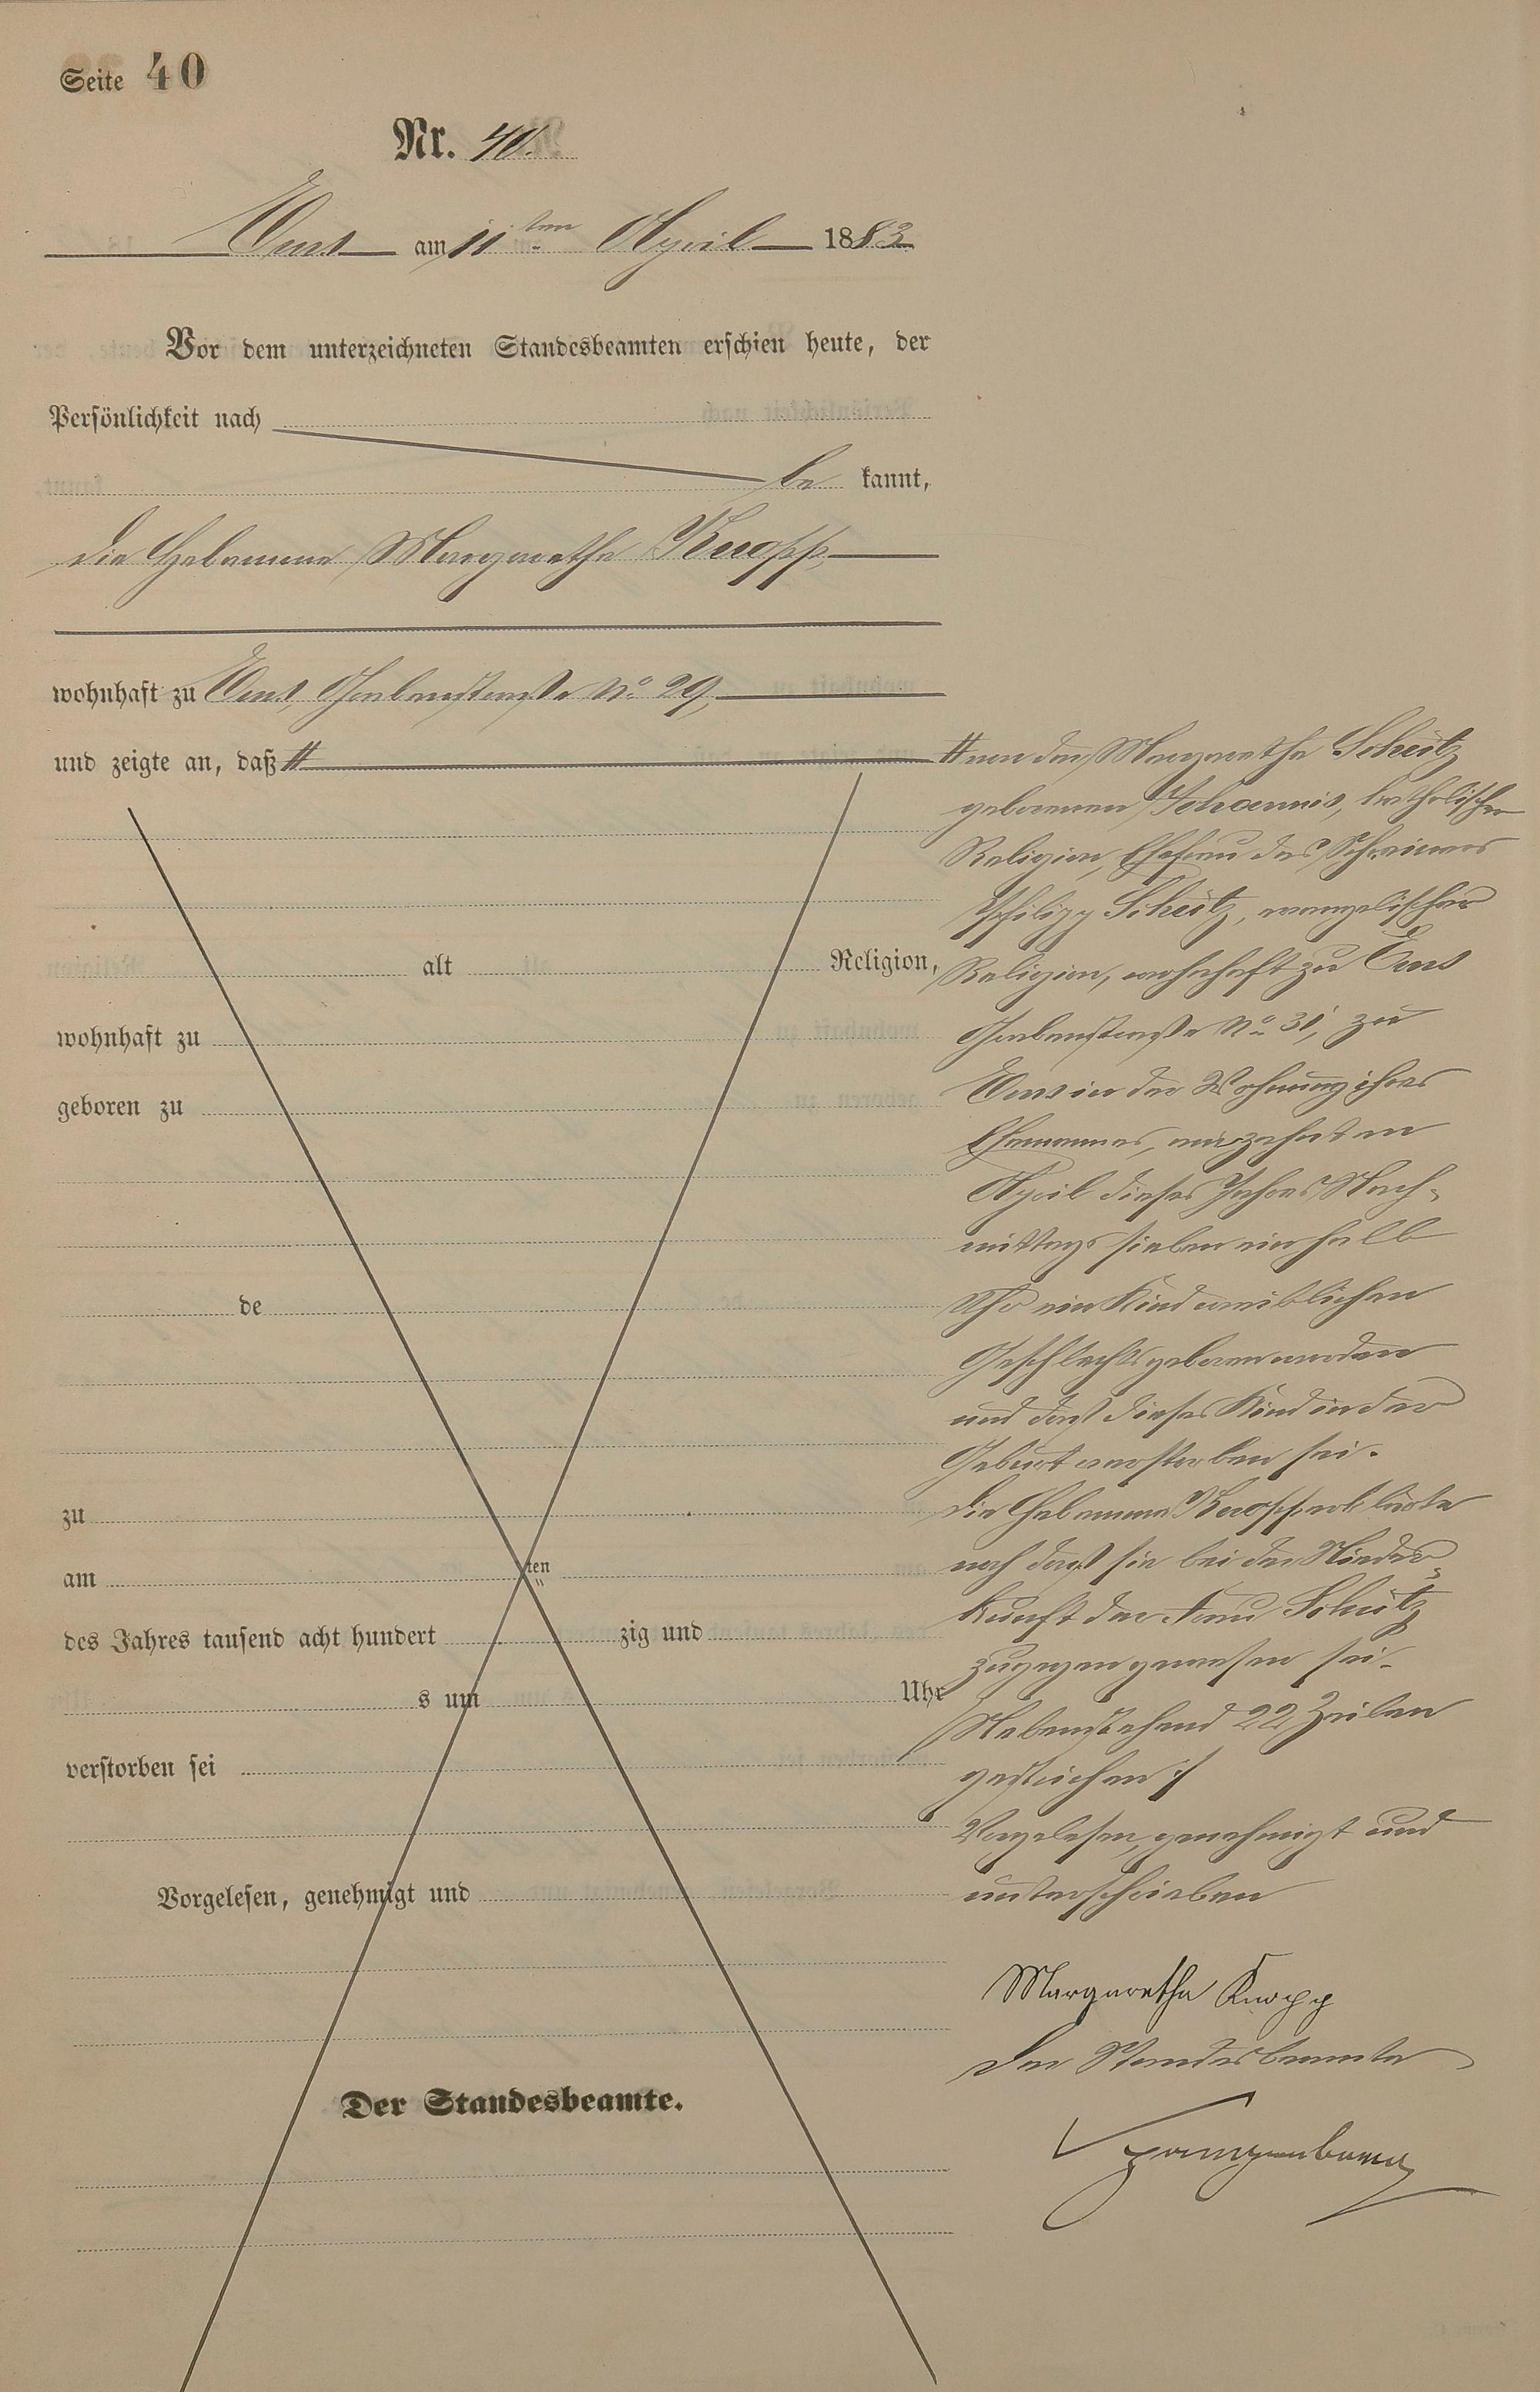 Seite 40
Nr. 40.
Ems am 11ten April 1883
Vor dem unterzeichneten Standesbeamten erschien heute, der
Persönlichkeit nach
be kannt,
die Hebamme Margarethe Knopp,
wohnhaft zu Ems, Grabenstraße No. 29,
und zeigte an, daß #
alt Religion,
wohnhaft zu
geboren zu
de
zu
am ten
des Jahres tausend acht hundert zig und
s um Uhr
verstorben sei
Vorgelesen, genehmigt und
Der Standesbeamte.
# von der Margarethe Schütz
geborenen katholischer
Religion, Ehefrau des Schreiners
Philipp Schütz, evangelischer
Religion, wohnhaft zu Ems
Grabenstraße No. 31, zu
Ems in der Wohnung ihres
Ehemannes, am zehnten
April dieses Jahres Nach-
mittags sieben einhalb
Uhr ein Kind weiblichen
Geschlechts geboren worden
und daß dieses Kind in der
Geburt verstorben sei.
Die Hebamme Knopp erklärte
noch daß sie bei der Nieder-
kunft der Frau Schütz
zugegen gewesen sei.
Nebenstehend 22 Zeilen
gestrichen
Vorgelesen, genehmigt und
unterschrieben
Margaretha Knopp
Der Standesbeamte